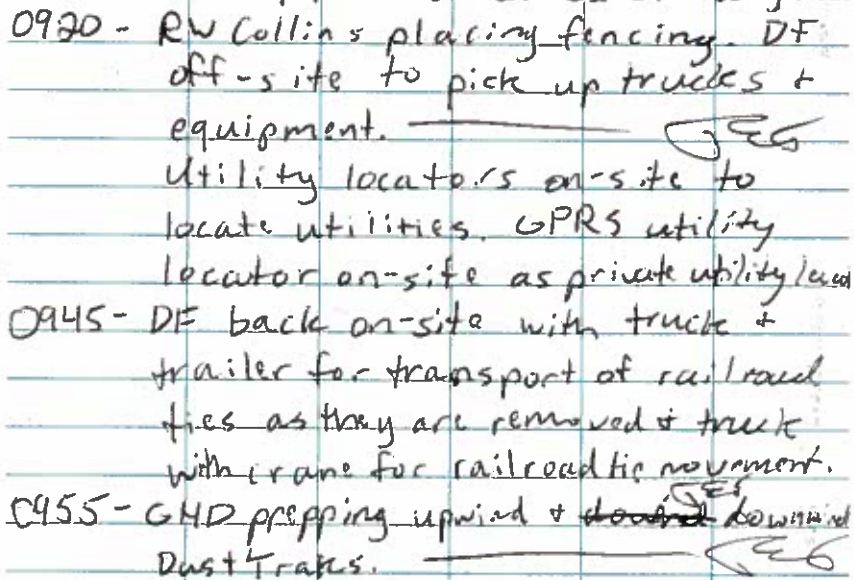 0920 - RW Collins placing fencing. DF
off-site to pick up trucks +
equipment.
Utility locators on-site to
locate utilities. GPRS utility
locator on-site as private utility
0945 - DF back on-site with truck +
trailer for transport of railroad
ties as they are removed + truck
with crane for railroad tie movement.
0955 - GHD prepping upwind + downwind
Dust Traks.